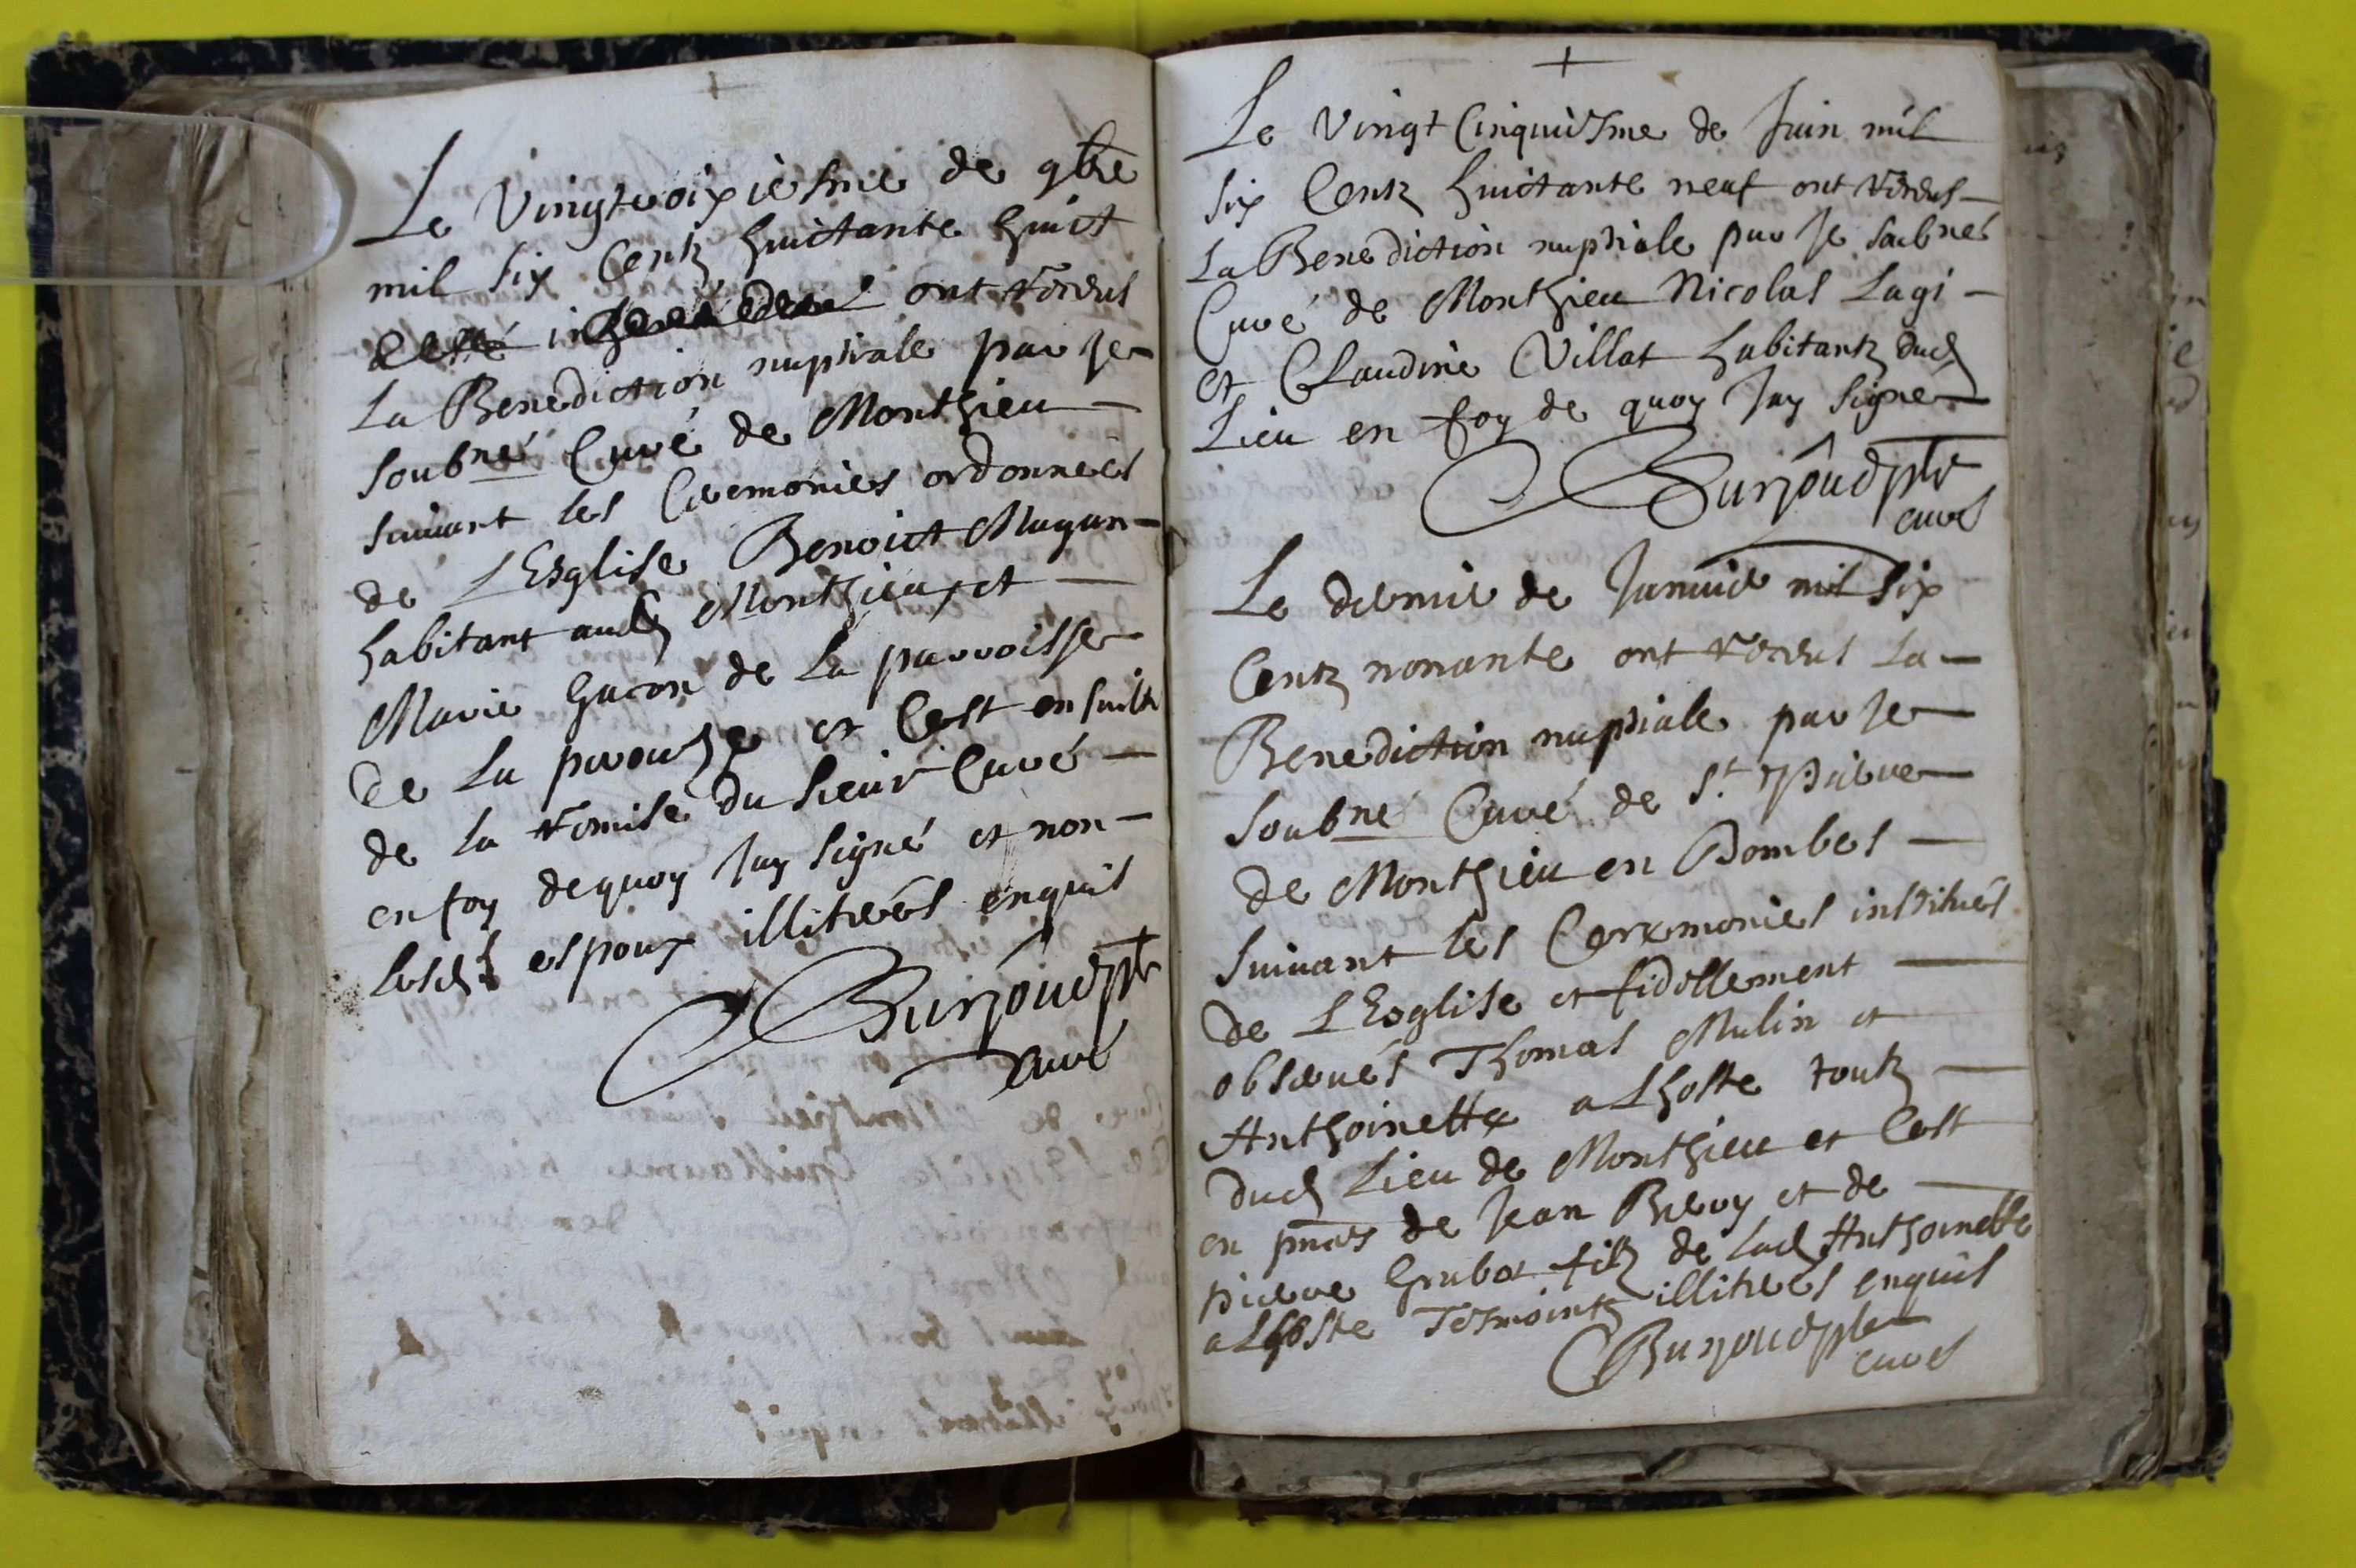 +
Le Vingtroixiesme de 9bre
mil six Centz huictante huict
ont receus
La Benediction nuptiale par Je
soubné Curé de Monthieu
suivant les Ceremonies ordonnees
de L'Esglise Benoict Mugan
habitant audt Monthieux et
Marie Gacon de La parroisse
de La perouse et Cest en suite
de la remise du sieur Curé
en foy de quoy Jay signé et non
lesdts espoux illitrées enquis
Burjoud pbr
curé
+
Le Vingt Cinquiesme de Juin mil
six Centz huictante neuf ont receus
La Benediction nuptiale par Je soubné
Curé de Monthieu Nicolas Lagi
et Claudine Villat habitantz dud
Lieu en foy de quoy Jay signé
Burjoud pbr
curé
Le dernier de Janvier mil six
Centz nonante ont receus La
Benediction nuptiale par Je
soubné Curé de St pierre
de Monthieu en Dombes
suivant les Ceremonies instituées
de L'Esglise et fidellement
observés Thomas Mulin et
Anthoinette alhoste toutz
dud Lieu de Monthieu et Cest
en pnces de Jean Brevoy et de
pierre Grubat filz de lad Anthoinette
alhoste Tesmointz illitrées enquis
Burjoud pbr
curé